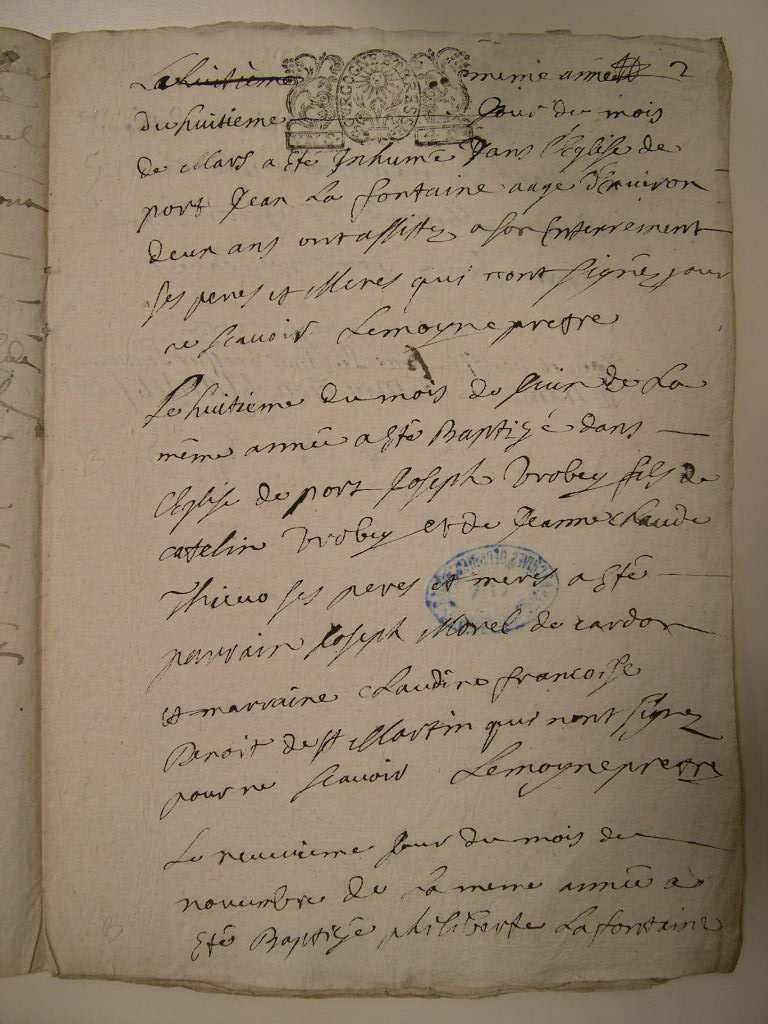 La huitieme meme année 2
Du huitieme Jour du mois
de Mars a Eté Inhumé Dans l'Eglise de
port Jean La fontaine aagé d'Enuiron
deux ans ont assistez a son Enterrement
ses peres et Meres qui nont signés pour
ne scauoir Lemoyne pretre
Le huitieme du mois de Juin de La
même année a Eté Baptizé dans
l'Eglise de port Joseph Vrobey fils de
catelin Vrobey et de Jeanne claude
ses peres et meres a Eté
parrain Joseph Morel de cardon
et marraine claudine francoise
Benoit de st Martin qui nont signez
pour ne scauoir Lemoyne pretre
Le neuuieme Jour du mois de
novembre de la meme année a
Eté Baptizée philiberte Lafontaine